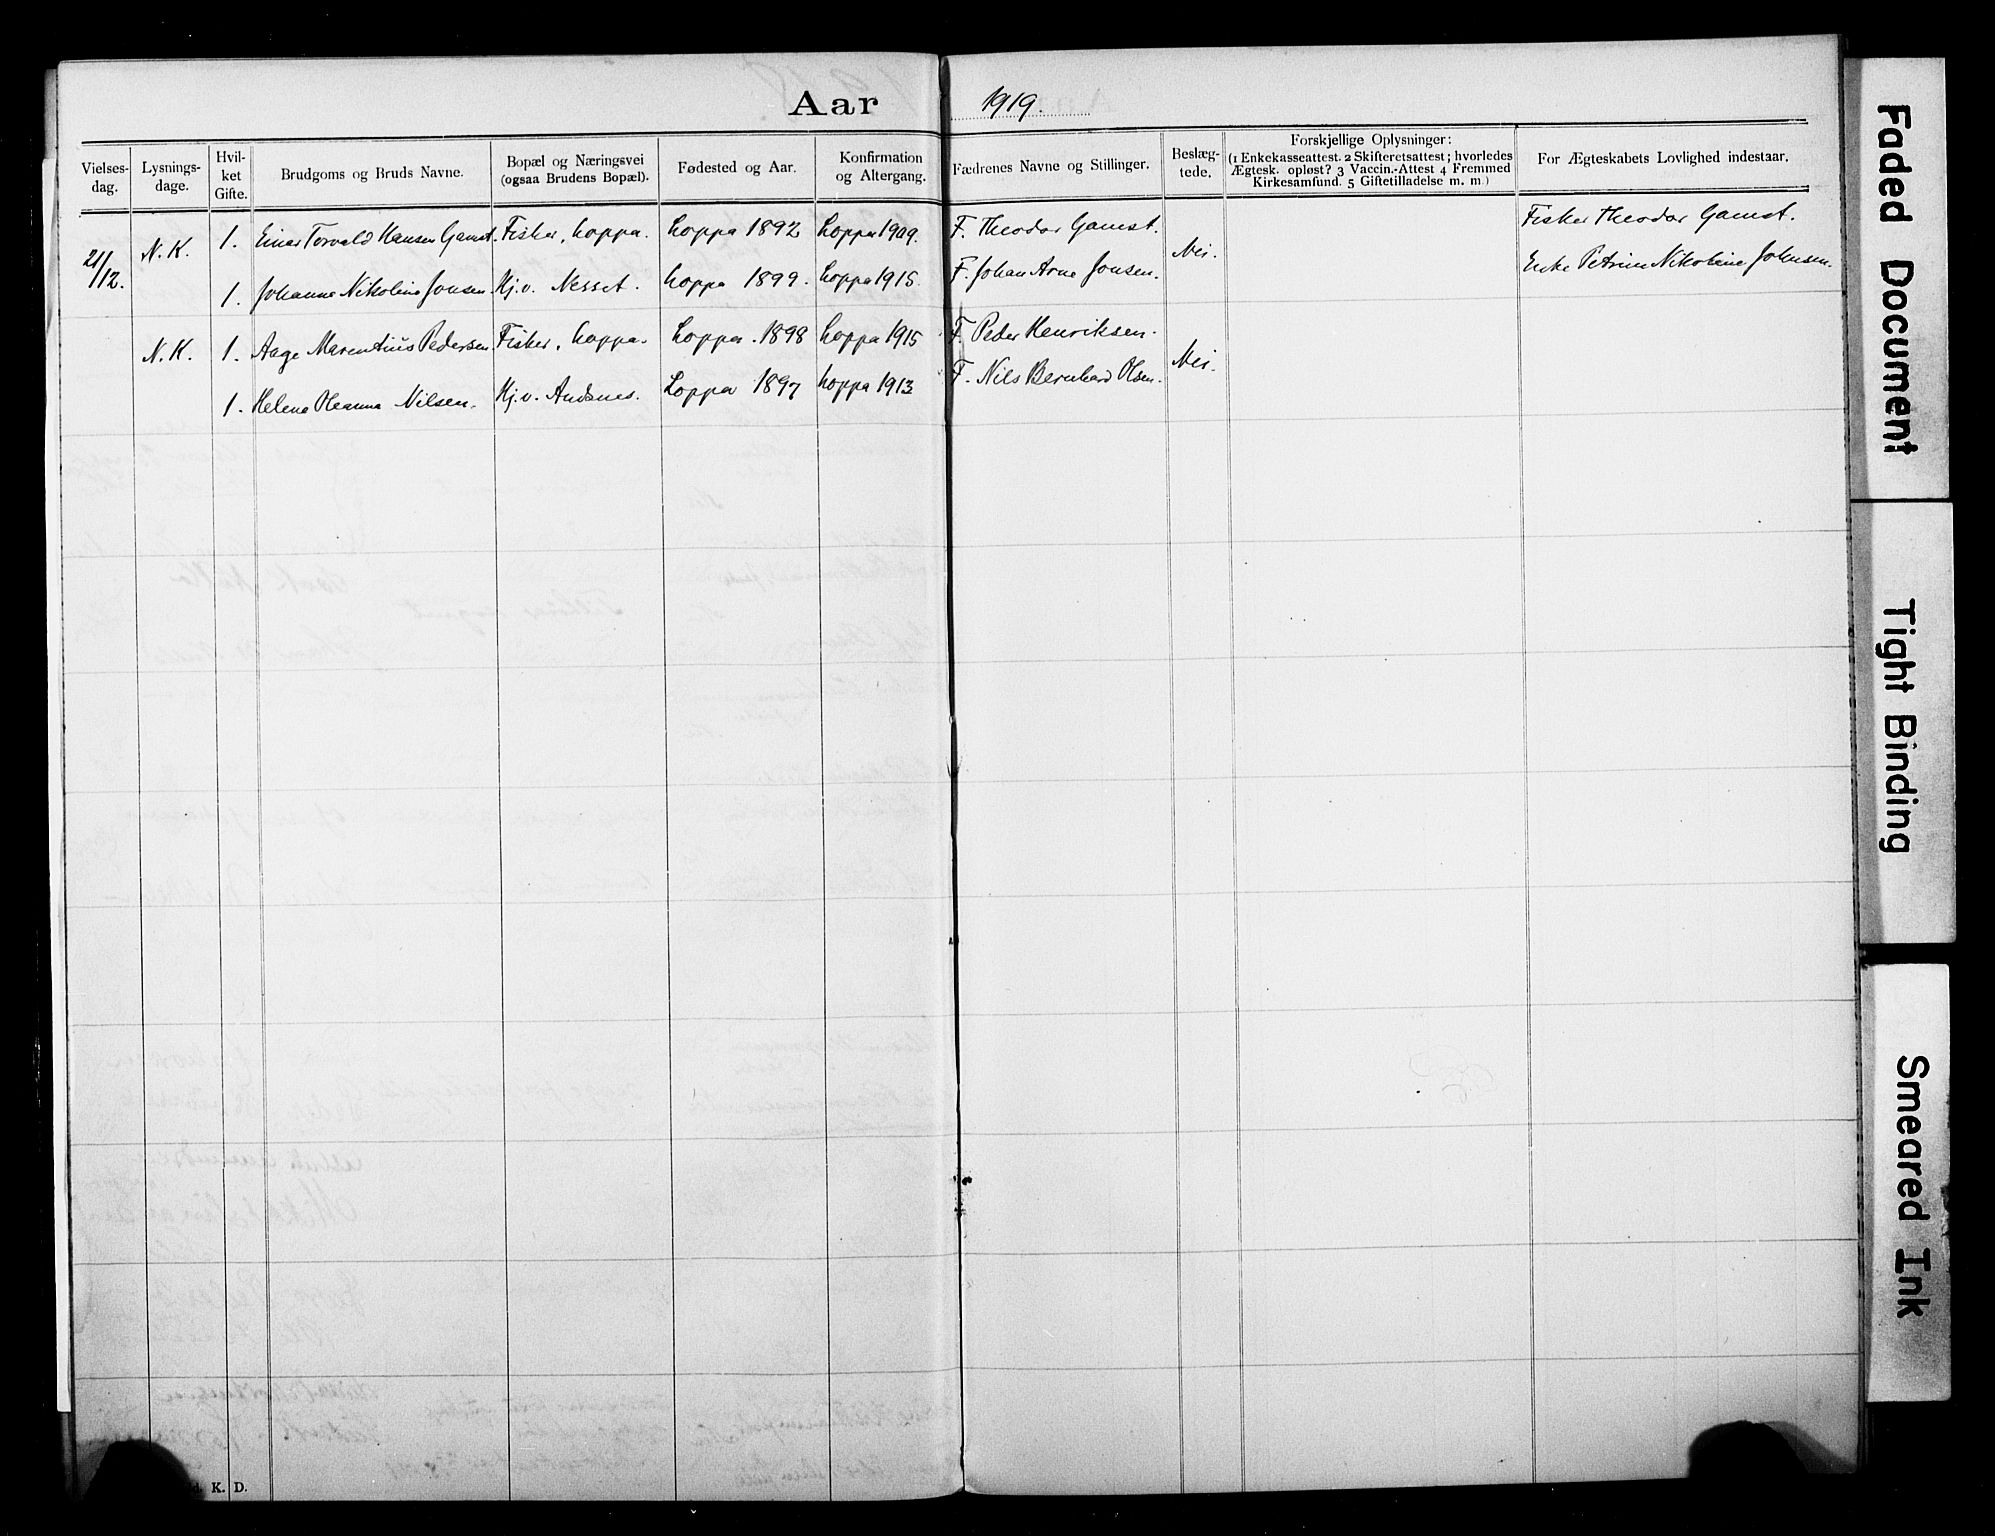 Aar 1919.
Vielses-dag.
Lysnings-dage.
Hvil-ket Gifte.
Brudgoms og Bruds Navne.
Bopæl og Næringsvei (ogsaa Brudens Bopæl).
Fødested og Aar.
Konfirmation og Altergang.
Fædrenes Navne og Stillinger.
Beslæg-tede.
Forskjellige Oplysninger: (1 Enkekasseattest. 2 Skifteretsattest; hvorledes Ægtesk. opløst? 3 Vaccin.-Attest 4 Fremmed Kirkesamfund. 5 Giftetilladelse m. m.)
For Ægteskabets Lovlighed indestaar.
21/12. N.K. 1. Einar Torvald Hansen Gamst. Fisker, Loppa. Loppa 1892 Loppa 1909. F. Theodor Gamst. Nei. Fisker Theodor Gamst.
1. Johanna Nikoline Jonsen. Kj.v. Nesset. Loppa 1899. Loppa 1915. F. Johan Arne Jonsen. Enke Petrine Nikoline Johnsen.
N.K. 1. Aage Marentius Pedersen. Fisker, Loppa. Loppa 1898 Loppa 1915 F. Peder Henriksen. Nei.
1. Helene Oleanna Nilsen. Kj.v. Andsnes. Loppa 1897 Loppa 1913 F. Nils Bernhard Olsen.
K. D.
Faded Document
Tight Binding
Smeared Ink